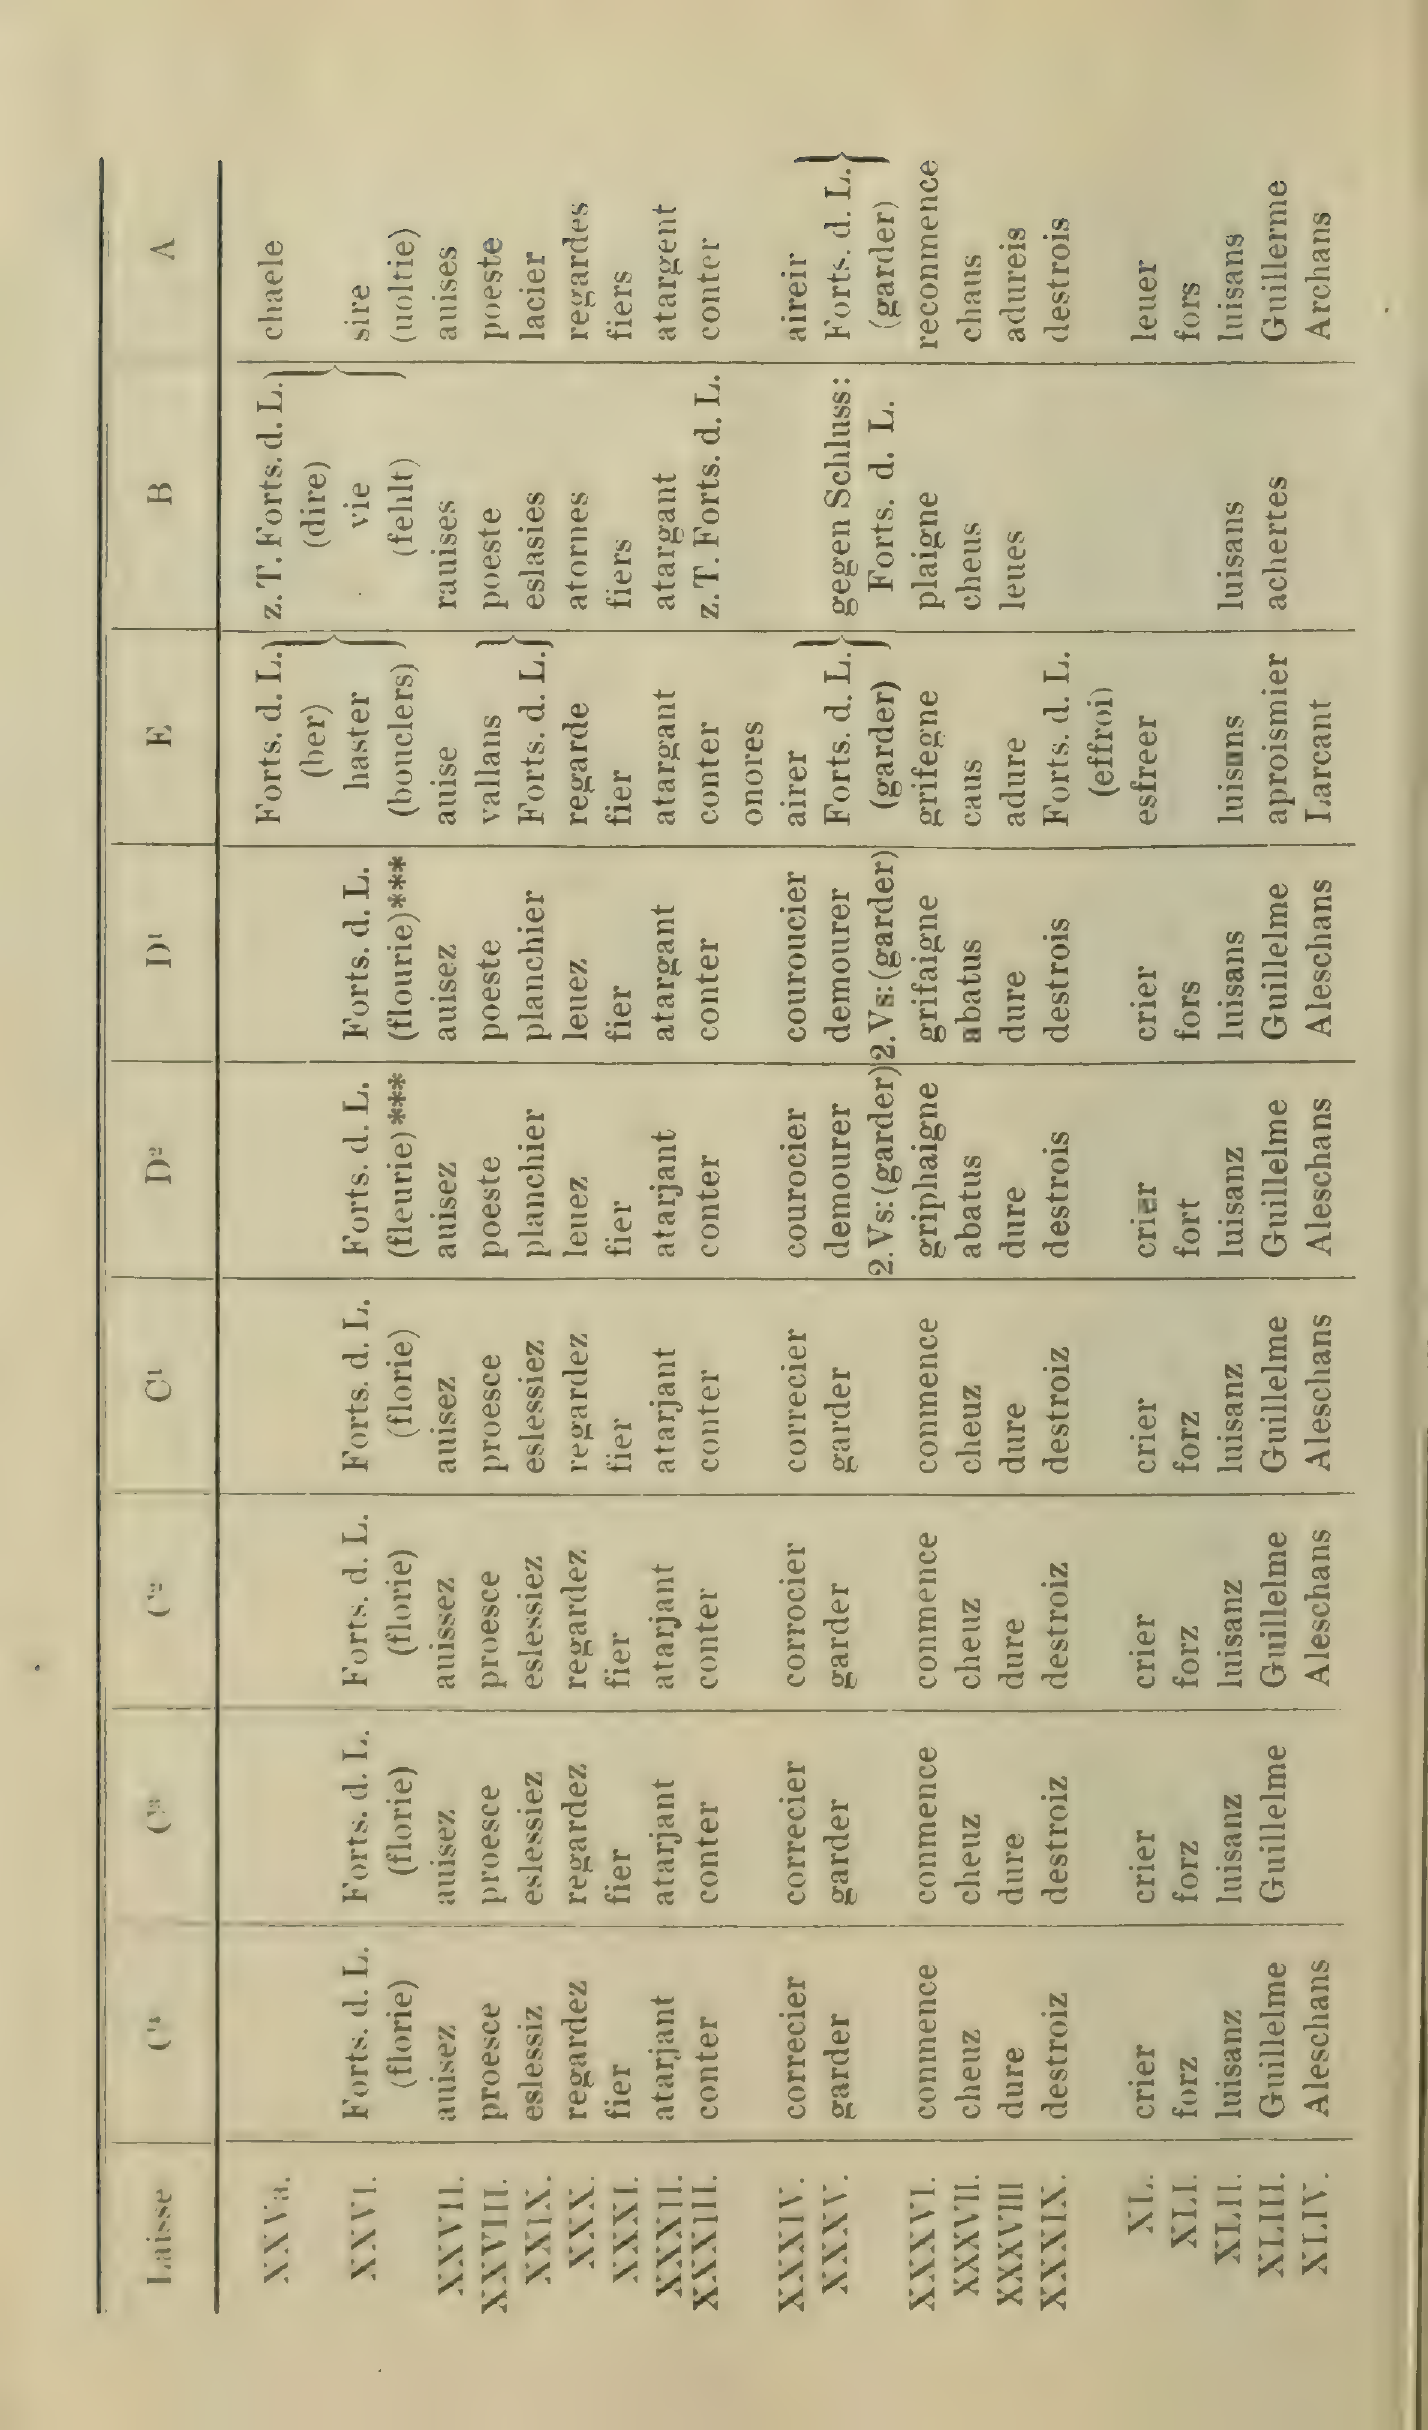 Laisse C⁴ C³ C² C¹ D² D¹ E B A
XXVa. Forts. d. L. z. T. Forts. d. L. chaele
(ber) (dire)
XXVI. Forts. d. L. Forts. d. L. Forts. d. L. Forts. d. L. Forts. d. L. Forts. d. L. haster vie sire
(florie) (florie) (florie) (florie) (fleurie)*** (flourie)*** (bouclers) (fehlt) (uoltie)
XXVII. auisez auisez auissez auisez auisez auisez auise rauises auises
XXVIII. proesce proesce proesce proesce poeste poeste vallans poeste poeste
XXIX. eslessiz eslessiez eslessiez eslessiez planchier planchier Forts. d. L. eslasies lacier
XXX. regardez regardez regardez regardez leuez leuez regarde atornes regardes
XXXI. fier fier fier fier fier fier fier fiers fiers
XXXII. atarjant atarjant atarjant atarjant atarjant atargant atargant atargant atargent
XXXIII. conter conter conter conter conter conter conter z. T. Forts. d. L. conter
onores
XXXIV. correcier correcier corrocier correcier courocier couroucier airer aireir
XXXV. garder garder garder garder demourer demourer Forts. d. L. gegen Schluss: Forts. d. L.
2. Vs: (garder) 2. Vs: (garder) (garder) Forts. d. L. (garder)
XXXVI. conmence conmence conmence conmence griphaigne grifaigne grifegne plaigne reconmence
XXXVII. cheuz cheuz cheuz cheuz abatus abatus caus cheus chaus
XXXVIII dure dure dure dure dure dure adure leues adureis
XXXIX. destroiz destroiz destroiz destroiz destrois destrois Forts. d. L. destrois
(effroi)
XL. crier crier crier crier crier crier esfreer leuer
XLI. forz forz forz forz fort fors fors
XLII. luisanz luisanz luisanz luisanz luisanz luisans luisans luisans luisans
XLIII. Guillelme Guillelme Guillelme Guillelme Guillelme Guillelme aproismier achertes Guillerme
XLIV. Aleschans Aleschans Aleschans Aleschans Aleschans Larcant Archans